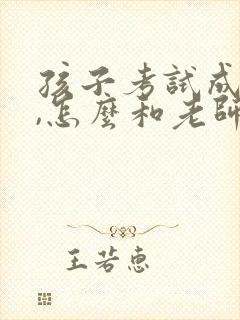 孩子考試成
,怎麼和老師
王若惠